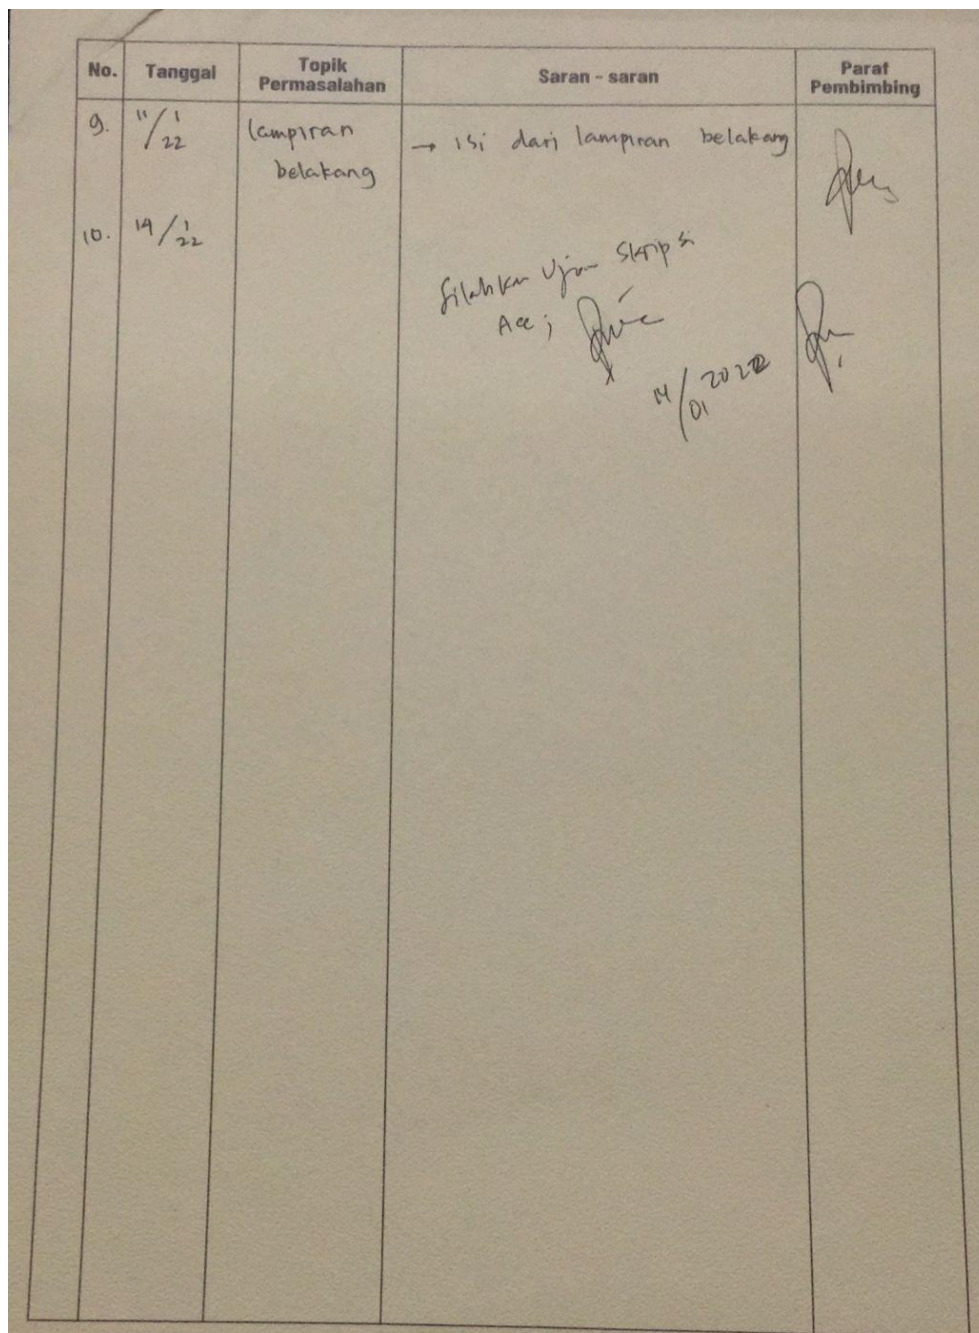 No. Tanggal Topik Permasalahan Saran - saran Paraf Pembimbing
9. 11/1 22 lampiran → isi dari lampiran belakang
belakang
10. 14/1 22
Silahkan Ujian Skripsi
Acc;
14/01 2022